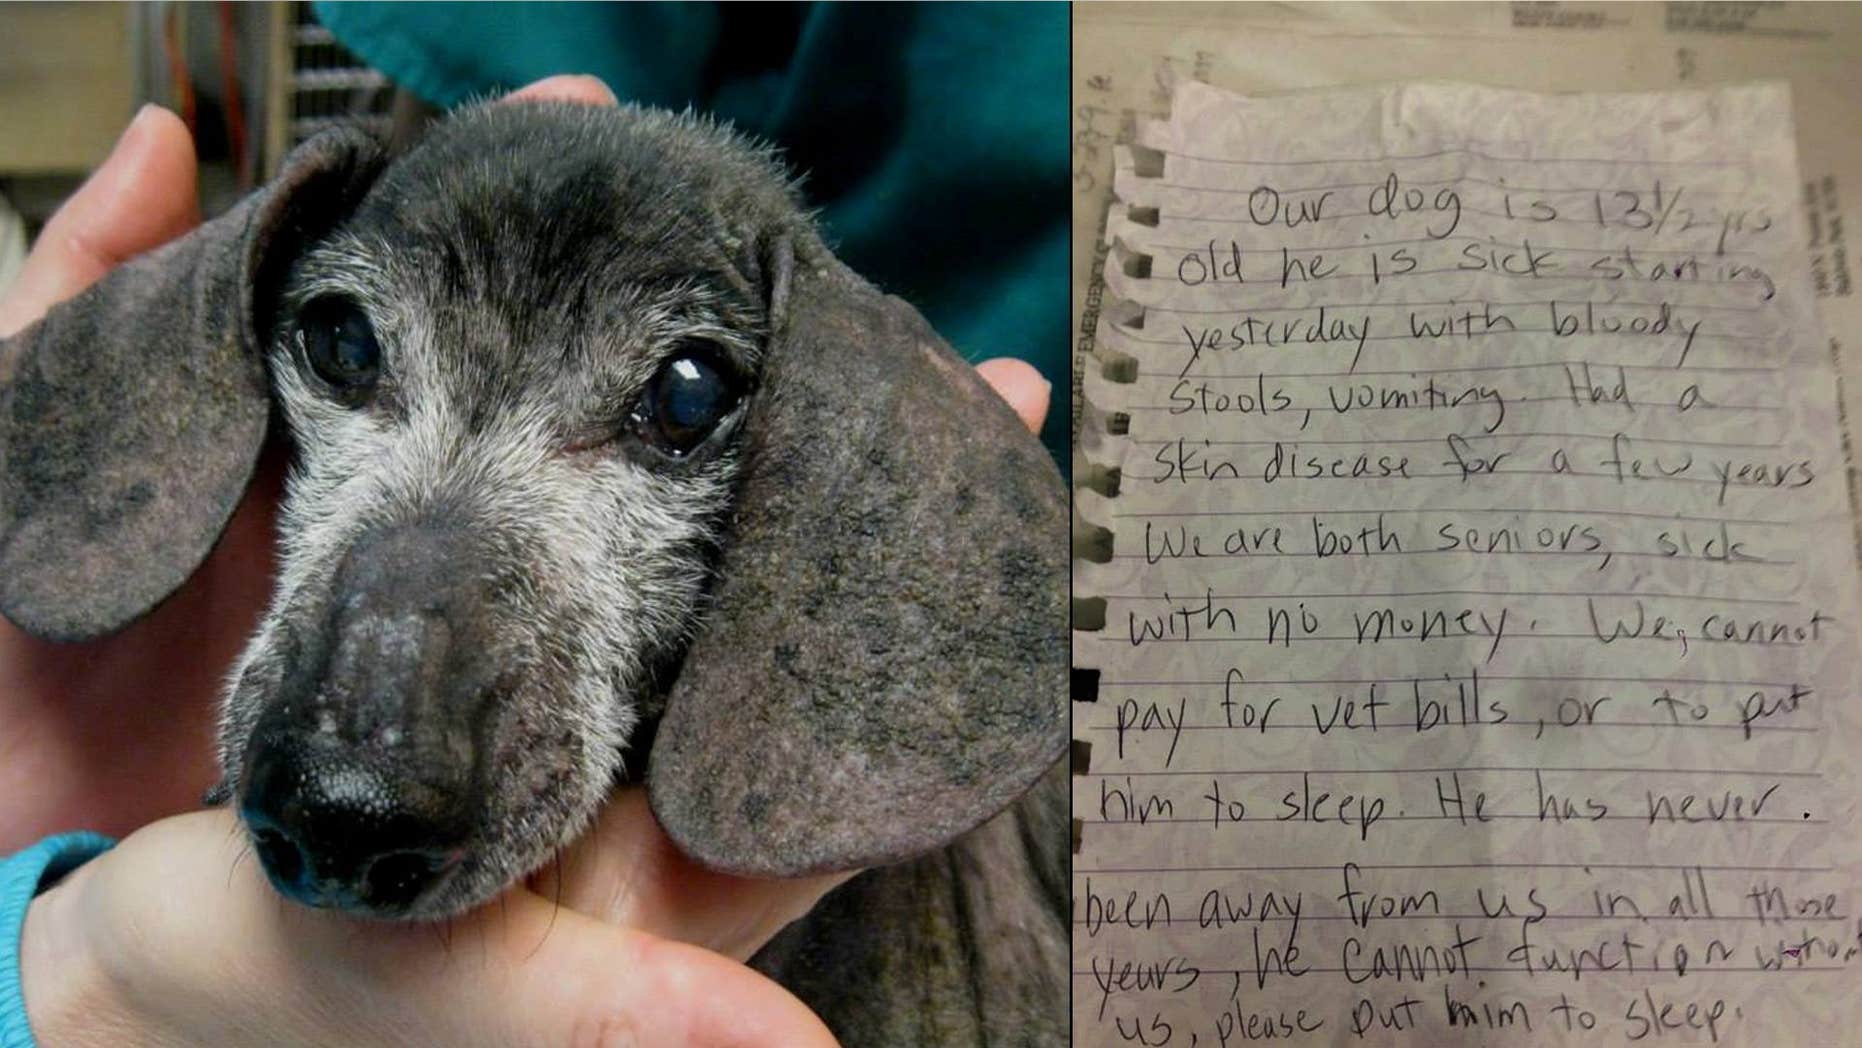 Our dog is 13½ yrs
old he is sick starting
yesterday with bloody
stools, vomiting. Had a
skin disease for a few years
We are both seniors, sick
with no money. We, cannot
pay for vet bills, or to put
him to sleep. He has never.
been away from us in all those
years, he cannot function without
us, please put him to sleep.